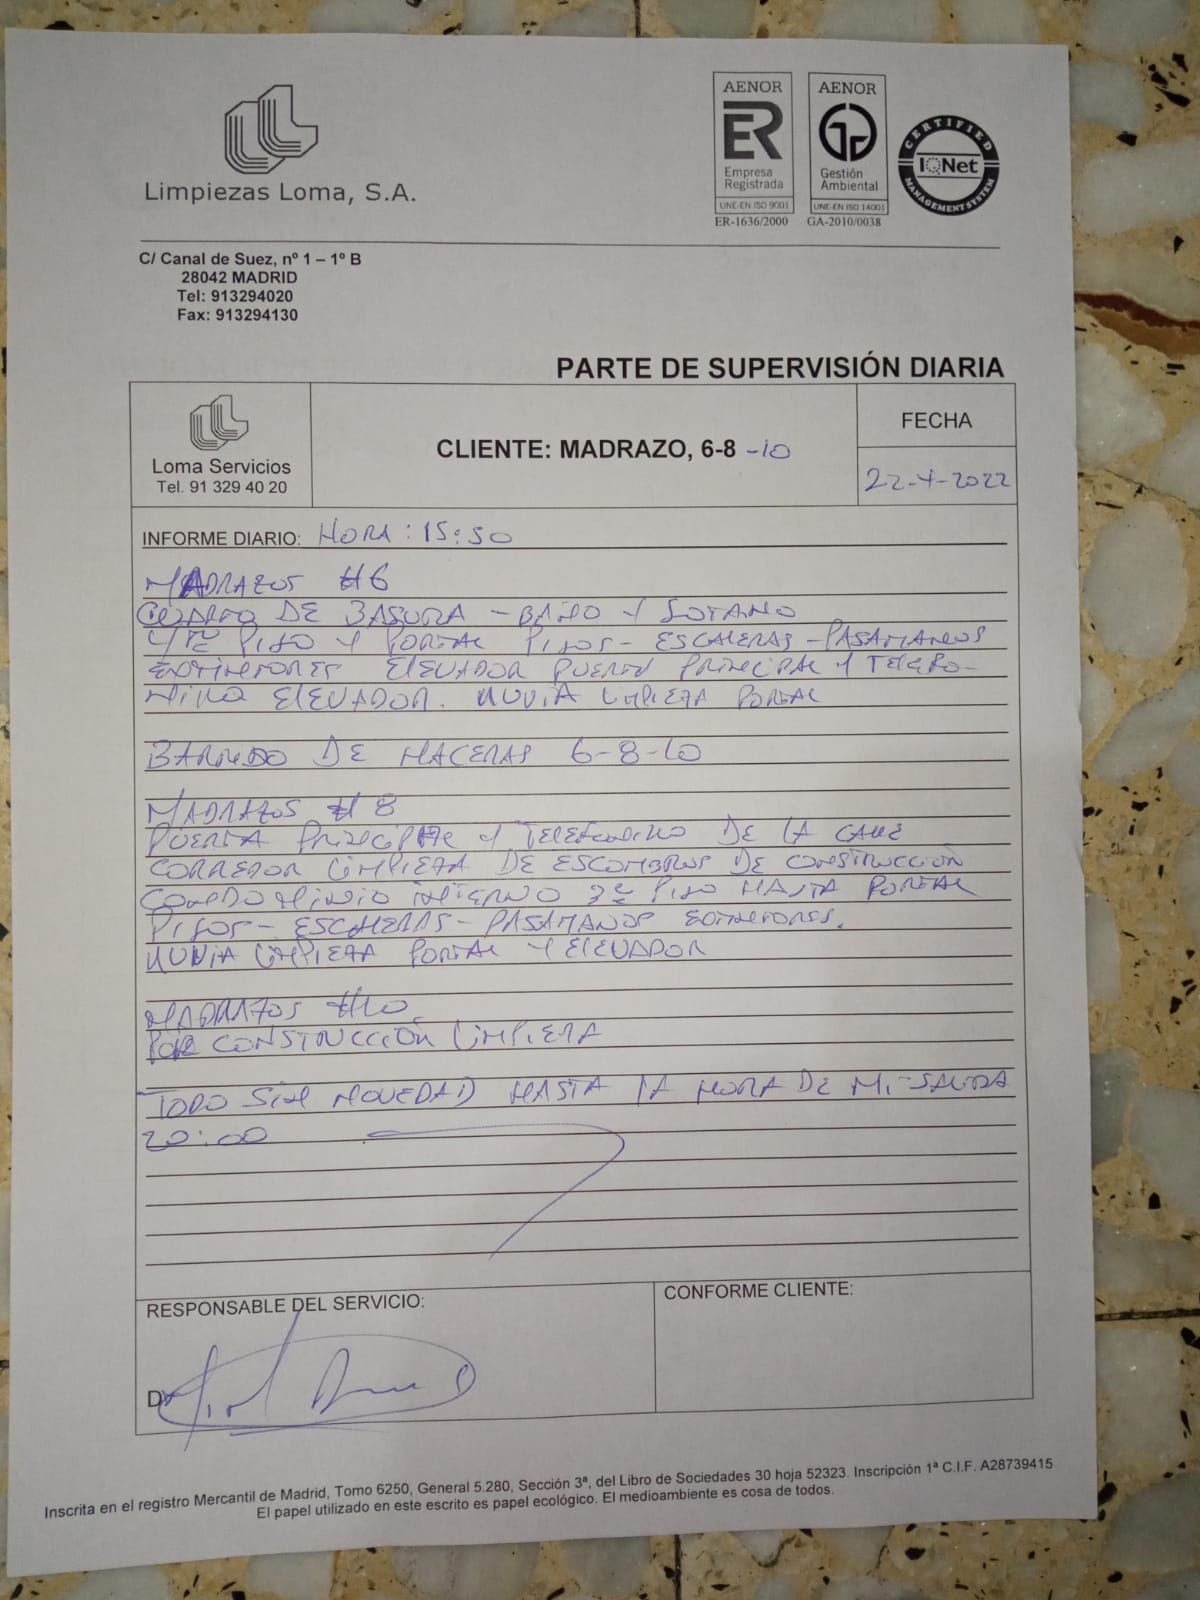 Limpiezas Loma, S.A.
AENOR
ER
Empresa
Registrada
UNE-EN ISO 9001
ER-1636/2000
AENOR
Gestión
Ambiental
UNE-EN ISO 14001
GA-2010/0038
CERTIFIED
IQNet
MANAGEMENT SYSTEM
C/ Canal de Suez, nº 1 – 1º B
28042 MADRID
Tel: 913294020
Fax: 913294130
PARTE DE SUPERVISIÓN DIARIA
Loma Servicios
Tel. 91 329 40 20
CLIENTE: MADRAZO, 6-8 -10
FECHA
22-4-2022
INFORME DIARIO: HORA: 15:50
MADRAZOS #6
CUARTO DE BASURA - BAÑO Y SOTANO
PISO Y PORTAL PISOS - ESCALERAS - PASAMANOS
EXTINTORES ELEVADOR PUERTA PRINCIPAL Y TELEFO-
ELEVADOR. LLUVIA LIMPIEZA PORTAL
BARRIDO DE MACERAS 6-8-10
MADRAZOS #8
PUERTA PRINCIPAL Y DE LA CALLE
CORREDOR LIMPIEZA DE ESCOMBROS DE CONSTRUCCIÓN
CONDOMINIO INTERNO PISO HASTA PORTAL
PISOS - ESCALERAS - PASAMANOS EXTINTORES.
LLUVIA LIMPIEZA PORTAL Y ELEVADOR
MADRAZOS #10.
POR CONSTRUCCIÓN LIMPIEZA
TODO SIN NOVEDAD HASTA LA HORA DE MI SALIDA
20:00
RESPONSABLE DEL SERVICIO:
CONFORME CLIENTE:
Inscrita en el registro Mercantil de Madrid, Tomo 6250, General 5.280, Sección 3ª, del Libro de Sociedades 30 hoja 52323. Inscripción 1ª C.I.F. A28739415
El papel utilizado en este escrito es papel ecológico. El medioambiente es cosa de todos.